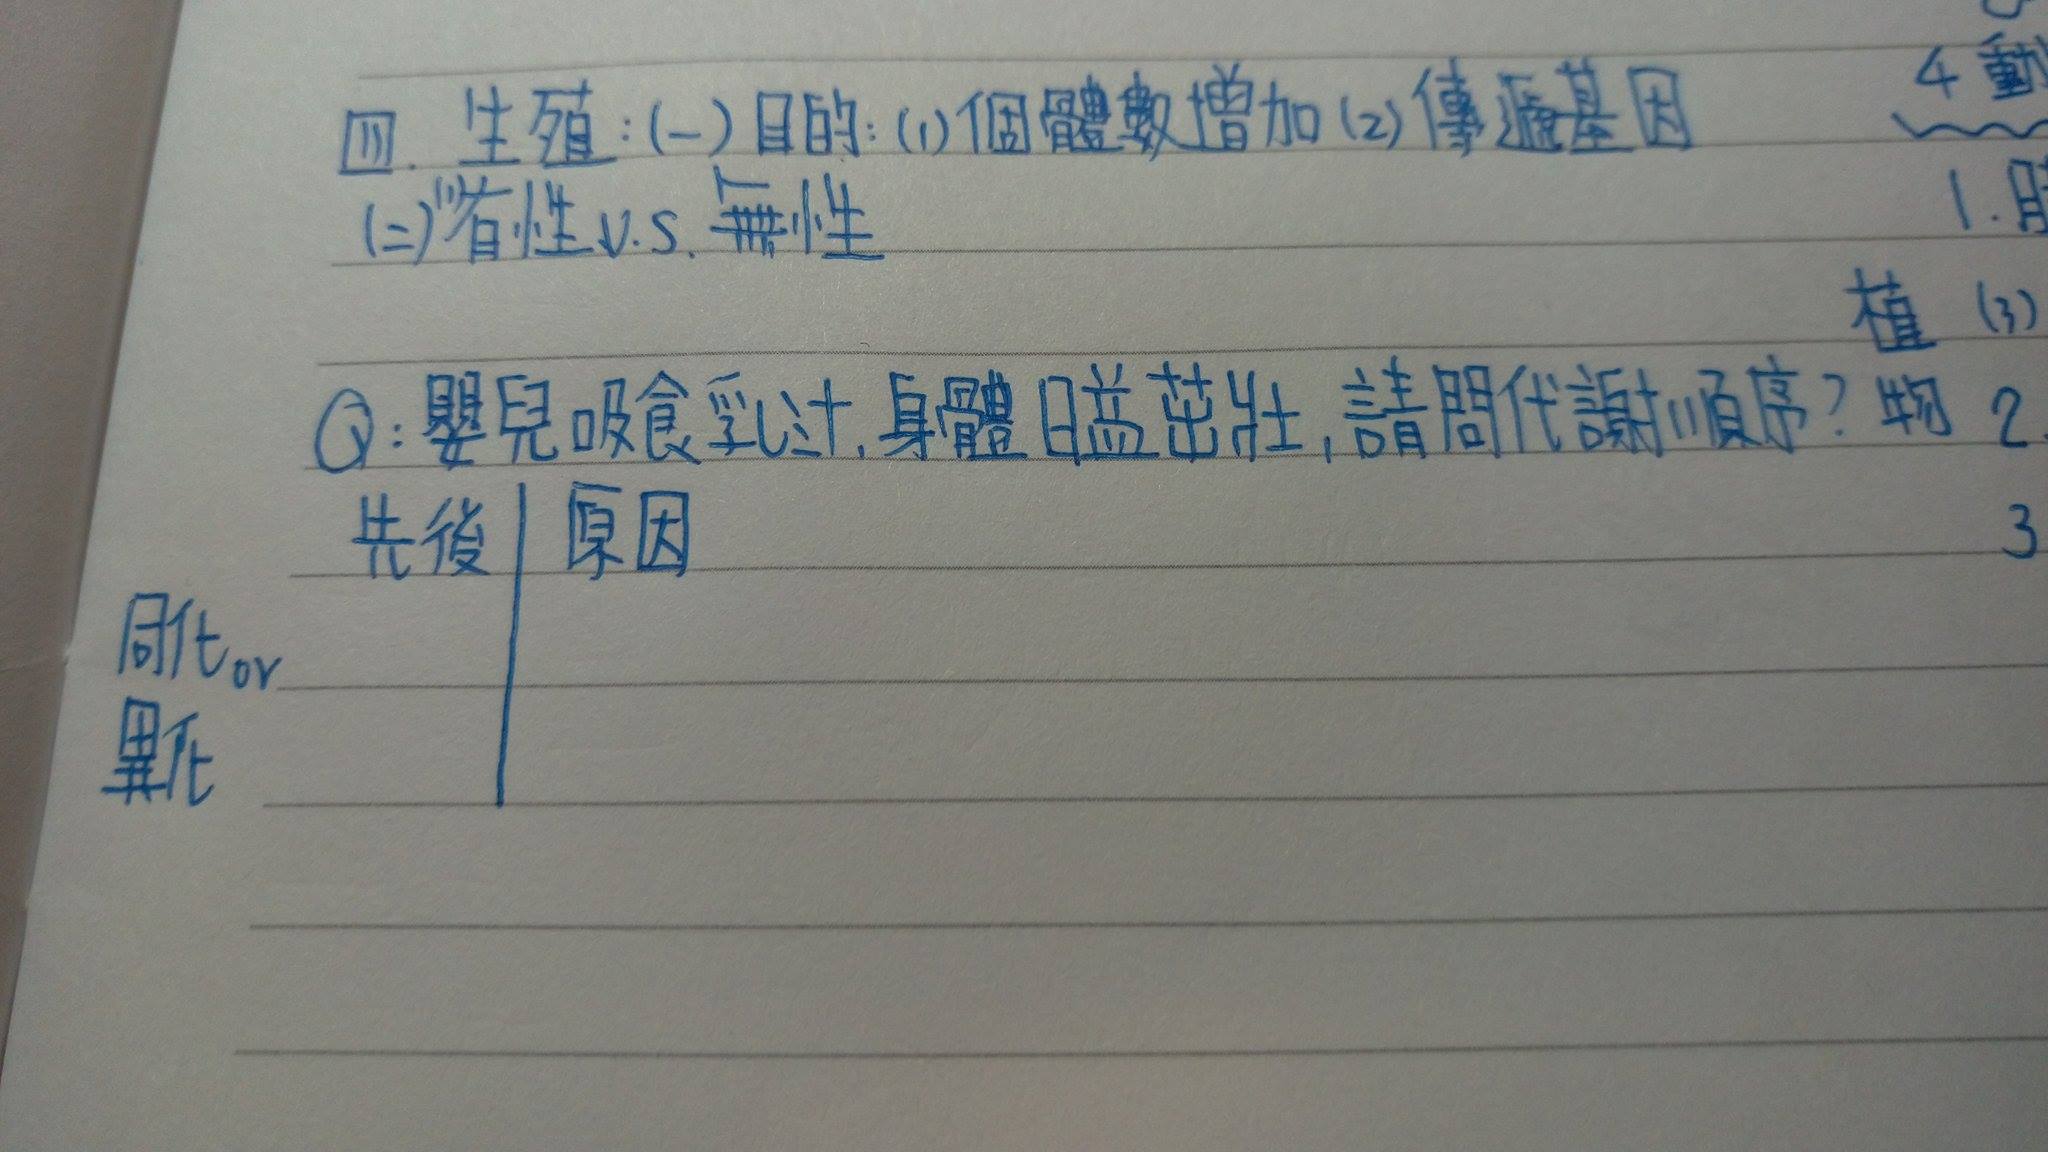 四. 生殖:(一)目的:(1)個體數增加(2)傳遞基因
(二)有性v.s.無性
Q:嬰兒吸食乳汁,身體日益茁壯,請問代謝順序?
先後 原因
同化or
異化
4 動
1.
植 (3)
物 2.
3